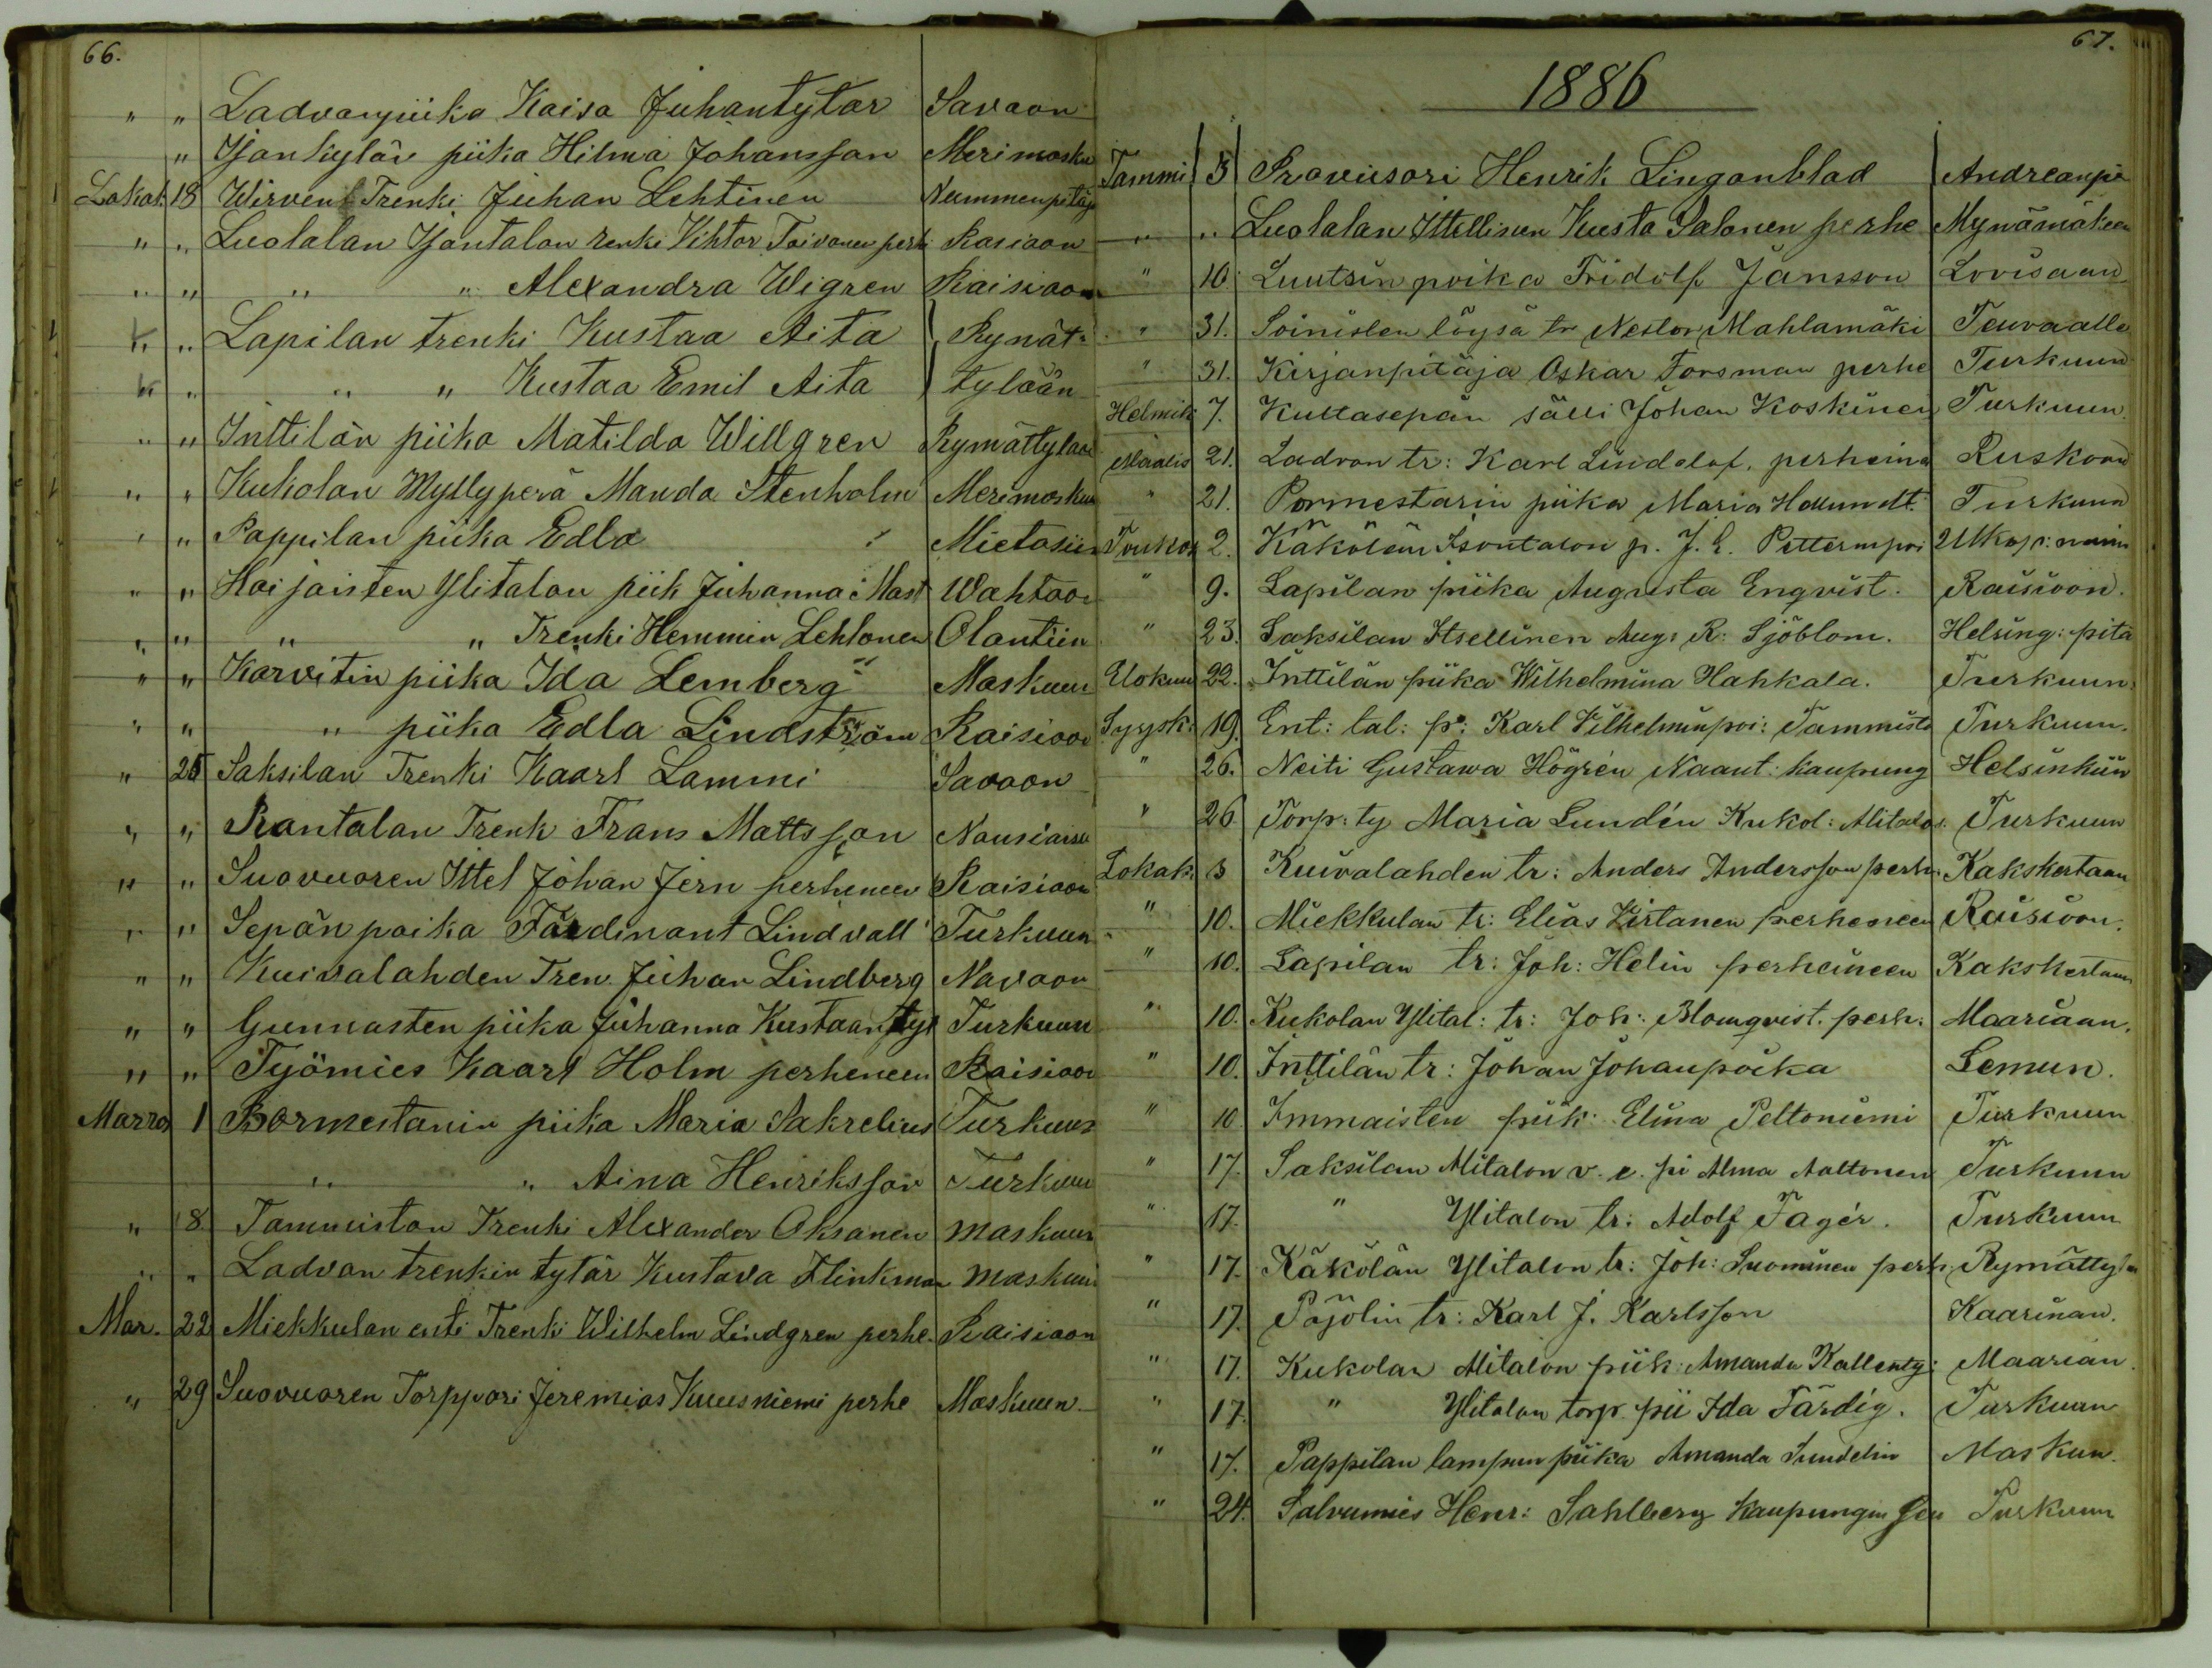 66.
" " Ladvanpiika Kaisa Juhantytär Savaon
" Isonkylän piika Hilma Johansson Merimasku
Lokak. 18 Wirven Trenki Juhan Lehtinen Nummenpitäj
" " Luolalan Isontalon renki Vihtor Toivonen perh Raisiaon
" " " " Alexandra Wigren Raisiaon
" " Lapilan trenki Kustaa Aita Rymät-
" " " " Kustaa Emil Aita tylään
" " Inttilän piika Matilda Willgren Rymättylään
" " Kukolan Myllyperä Manda Stenholm Merimaskun
" " Pappilan piika Edla Mietosiin
" " Hoijaisten Ylitalon piik Juhanna Mast Wahtoon
" " " " Trenki Hemmin Lehtonen Olantiin
" " Karvitin piika Ida Lemberg Maskuun
" " " piika Edla Lindström Raisioon
" 25 Saksilan Trenki Kaarl Lammi Savaon
" " Rantalan Trenk Frans Mattsson Nousiaisu
" " Suovuoren Ittel Johan Jern perheneen Raisiaon
" " Sepän poika Färdinant Lindvall Turkuun
" " Kuivalahden Tren Juhan Lindberg Navaon
" " Gunnasten piika Juhanna Kustaantyt Turkuun
" " Työmies Kaarl Holm perheneen Raisiaon
Marras 1 Bormestarin piika Maria Sakrelius Turkuun
" " Aina Henriksson Turkuun
" 8 Tammiston Trenki Alexander Oksanen maskuun
" " Ladvan trenkin tytär Kustava Flinkman maskuun
Mar. 22 Miekkulan enti Trenki Wilhelm Lindgren perhe. Raisiaon
" 29 Suovuoren Torppari Jeremias Kuusniemi perhe Maskuun
67.
1886
Tammi 3 Proviisori Henrik Linganblad Andreanpi
" " Luolalan Ittellisen Kusta Salonen perhe Mynämäkeen
" 10. Luutsin poika Fridolf Jansson Lovisaan
" 31. Soinisten löysä tr Nestor Mahlamäki Teuvaalle
" 31. Kirjanpitäjä Oskar Forsman perhe Turkuun
Helmik 7. Kultasepän sälli Johan Koskinen Turkuun.
Maalis 21. Ladvan tr: Karl Lindelöf. perheine Ruskoon
" 21. Pormestarin piika Maria Hallundt. Turkuun
Toukok 2. Käkölän Isontalon p. J. E. Petterinpoi Ulkop: maim
" 9. Lapilan piika Augusta Enqvist. Raisioon.
" 23. Saksilan Itsellinen Aug: R: Sjöblom. Helsing: pitä
Elokuu 22. Inttilän piika Wilhelmina Hahkala. Turkuun.
Syysk: 19. Ent: tal: p: Karl Vilhelminpoi: Tammisto Turkuun.
" 26. Neiti Gustawa Högrén Naant: kaupung Helsinkiin
" 26. Torp: ty Maria Lundén Kukol: Alitalo: Turkuun
Lokak: 3 Kuivalahden tr: Anders Andersson perh: Kakskertaan
" 10. Miekkulan tr: Elias Virtanen perheneen Raisioon.
" 10. Lapilan tr: Joh: Helin perheineen Kakskertaan
" 10. Kukolan Ylital: tr: Joh: Blomqvist. perh: Maariaan.
" 10. Inttilän tr: Johan Johanpoika Lemun.
" 10 Immaisten piik: Elina Peltoniemi Turkuun
" 17. Saksilan Alitalon v. e. pi Alma Aaltonen Turkuun
" 17. " Ylitalon tr: Adolf Fagér. Turkuun
" 17. Käkölän Ylitalon tr: Joh: Suominen perh: Rymättylän
" 17. Pöjolin tr: Karl J. Karlsson Kaarinan.
" 17. Kukolan Alitalon piik: Amanda Kallenty: Maarian.
" 17. " Ylitalon torp. pii Ida Färdig. Turkuun
" 17. Pappilan lampun piika Amanda Sundelin Maskun.
" 24. Salvumies Henr: Sahlberg kaupungin Turkuun